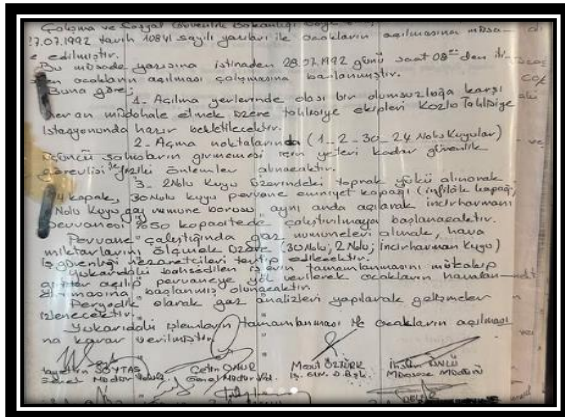 Çalışma ve Sosyal Güvenlik Bakanlığı
27.07.1992 tarih 10841 sayılı yazıları ile ocakların açılmasına müsa-
e edilmiştir.
Bu müsade yazısına istinaden 28.07.1992 günü saat 08⁰⁰ den iti-
en ocakların açılması çalışmasına başlanmıştır.
Buna göre;
1- Açılma yerlerinde olası bir olumsuzluğa karşı
her an müdahale etmek üzere tahlisiye ekipleri Kozlu Tahlisiye
İstasyonunda hazır bekletilecektir.
2- Açma noktalarında (1_2_30_24 Nolu Kuyular)
üçüncü şahısların girmemesi için yeteri kadar güvenlik
görevlisi ve fiziki önlemler alınacaktır.
3- 2 Nolu Kuyu üzerindeki toprak yükü alınarak
kapak, 30 Nolu kuyu pervane emniyet kapağı (infilak kapağı)
Nolu Kuyu gaz numune borusu aynı anda açılarak incirharmanı
pervanesi %50 kapasitede çalıştırılmaya başlanacaktır.
Pervane çalıştığında gaz numuneleri almak, hava
miktarlarını ölçmek üzere (30 Nolu; 2 Nolu; incirharman Kuyu)
iş güvenliği nezaretcileri tertip edilecektir.
Yukarıdaki bahsedilen işlerin tamamlanmasını mütakip
açılıp pervaneye yol verilerek ocakların havalan-
dırmasına başlanmış olunacaktır.
Peryodik olarak gaz analizleri yapılarak gelişmeler
izlenecektir.
Yukarıdaki işlemlerin tamamlanması ile ocakların açılması
na karar verilmiştir.
SOYTAŞ Çetin ONUR Mesut ÖZTÜRK ÜNLÜ
Genel Müdür İş. Gün. D. Bşk. Müessese Müdürü